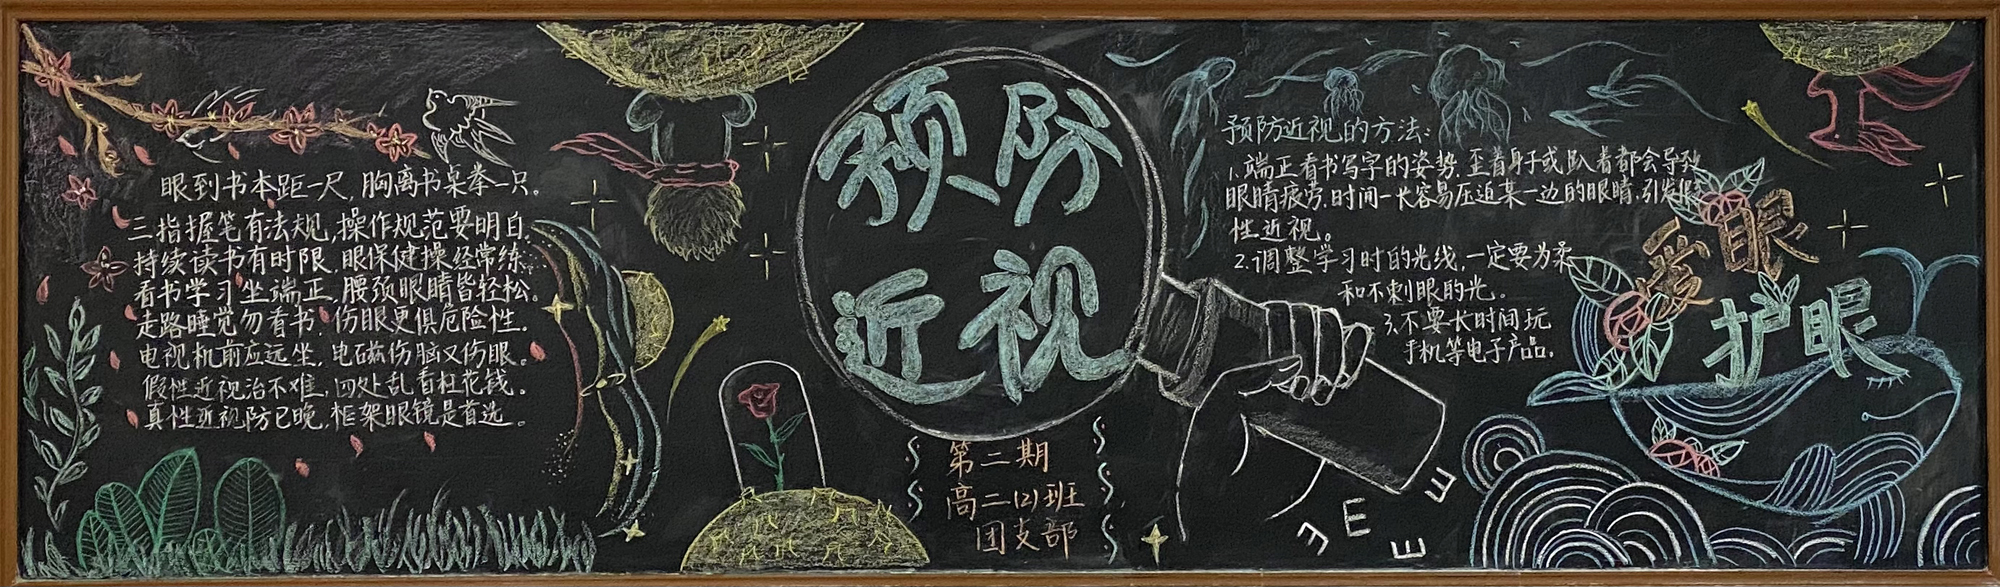 眼到书本距一尺,胸离书桌拳一只。
三指握笔有法规,操作规范要明白.
持续读书有时限,眼保健操经常练.
看书学习坐端正,腰颈眼睛皆轻松。
走路睡觉勿看书,伤眼更俱危险性.
电视机前应远坐,电磁伤脑又伤眼。
假性近视治不难,四处乱看枉花钱。
真性近视防已晚,框架眼镜是首选。
预防
近视
第二期
高二(2)班
团支部
E
E
E
E
预防近视的方法:
1.端正看书写字的姿势.歪着身子或趴着都会导致
眼睛疲劳.时间一长容易压迫某一边的眼睛.引发
性近视。
2.调整学习时的光线,一定要为柔
和不刺眼的光。
3.不要长时间玩
手机等电子产品。
爱眼
护眼